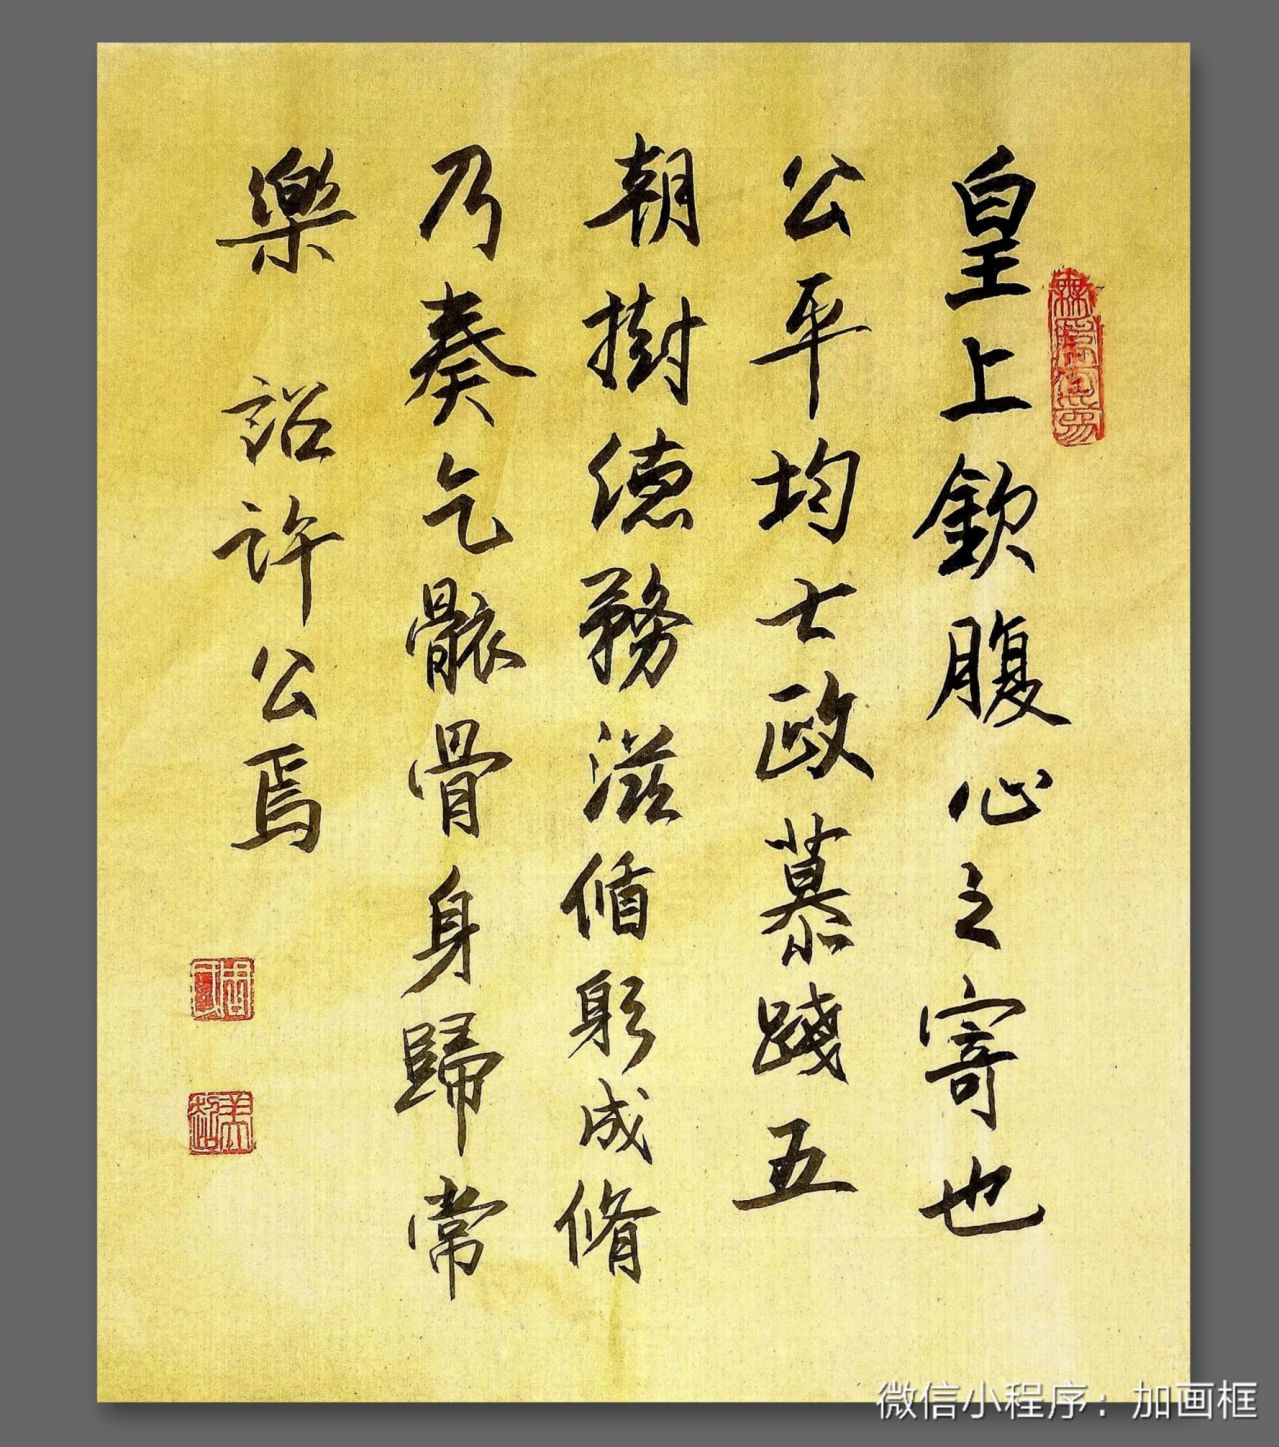 皇上欽腹心之寄也
公平均士政慕踐五
朝樹德務滋循躬成脩
乃奏乞骸骨身歸常
樂 詔許公焉
微信小程序：加画框